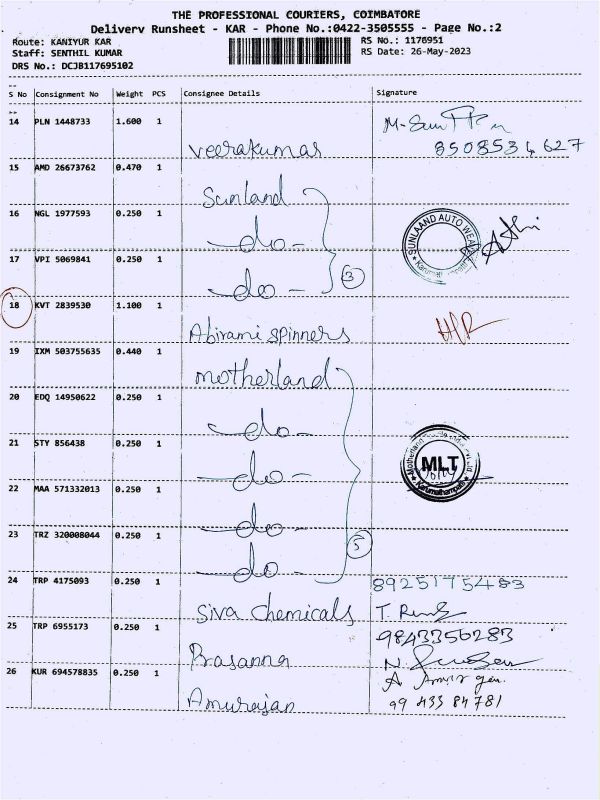 THE PROFESSIONAL COURIERS, COIMBATORE
Delivery Runsheet - KAR - Phone No.:0422-3505555 - Page No.:2
Route: KANIYUR KAR
RS No.: 1176951
Staff: SENTHIL KUMAR
RS Date: 26-May-2023
DRS No.: DCJB117695102
S No Consignment No Weight PCS Consignee Details Signature
14 PLN 1448733 1.600 1
Veerakumar
8508534627
15 AMD 26673762 0.470 1
Sunland
16 NGL 1977593 0.250 1
-do-
SUNLAAND AUTO WEA
17 VPI 5069841 0.250 1
-do-
3
18 KVT 2839530 1.100 1
Abirami spinners
19 IXM 503755635 0.440 1
motherland
20 EDQ 14950622 0.250 1
-do-
21 STY 856438 0.250 1
-do-
MLT
Karumathampatti
22 MAA 571332013 0.250 1
-do-
23 TRZ 320008044 0.250 1
-do-
5
24 TRP 4175093 0.250 1
89251 75483
Siva chemicals
25 TRP 6955173 0.250 1
9843356283
Prasanna
26 KUR 694578835 0.250 1
Amurajan
99 433 84781